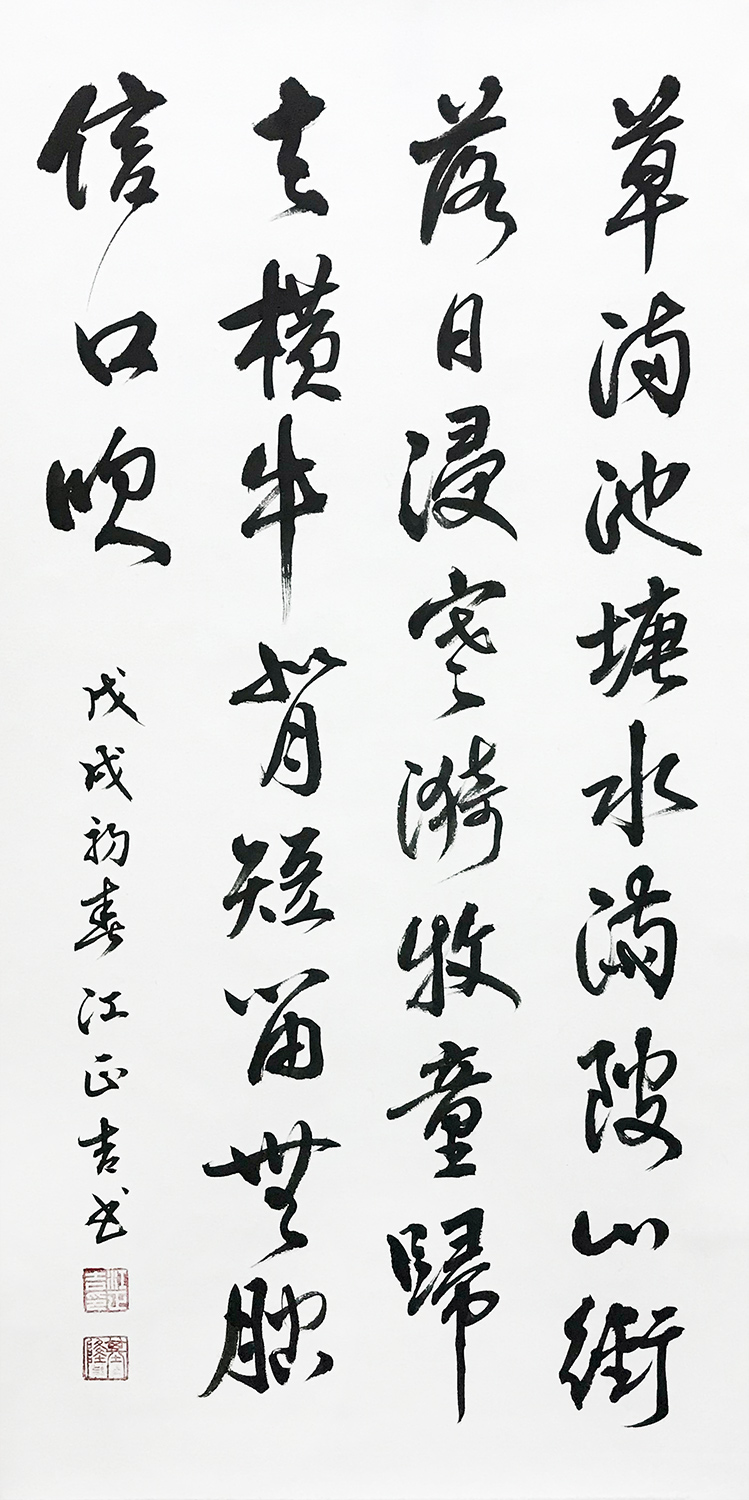 草滿池塘水滿陂山銜
落日浸寒漪牧童歸
去横牛背短笛無腔
信口吹
戊戌初春江正吉书